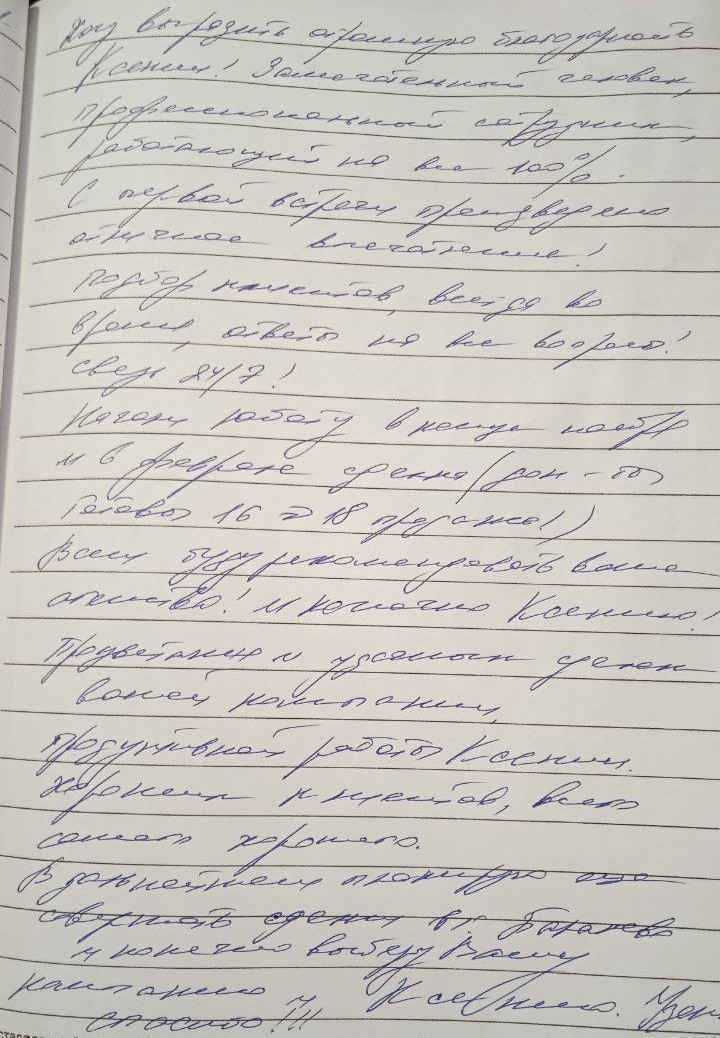 Хочу выразить огромную благодарность
Ксении! Замечательный человек,
профессиональный сотрудник,
работающий на все 100%.
С первой встречи произведено
отличное впечатление!
Подбор клиентов, всегда во
время, ответы на все вопросы!
связь 24/7!
Начали работу в конце ноября
и в феврале сделка (док-ты
готовы 16 18 продажа!)
Всем буду рекомендовать ваше
агенство! И конечно Ксению!
Процветания и удачных сделок
вашей компании,
продуктивной работы Ксении.
Хороших клиентов, всего
самого хорошего.
В дальнейшем планирую еще
совершать сделки в г.
и конечно выберу Вашу
компанию Ксению.
спасибо!!!